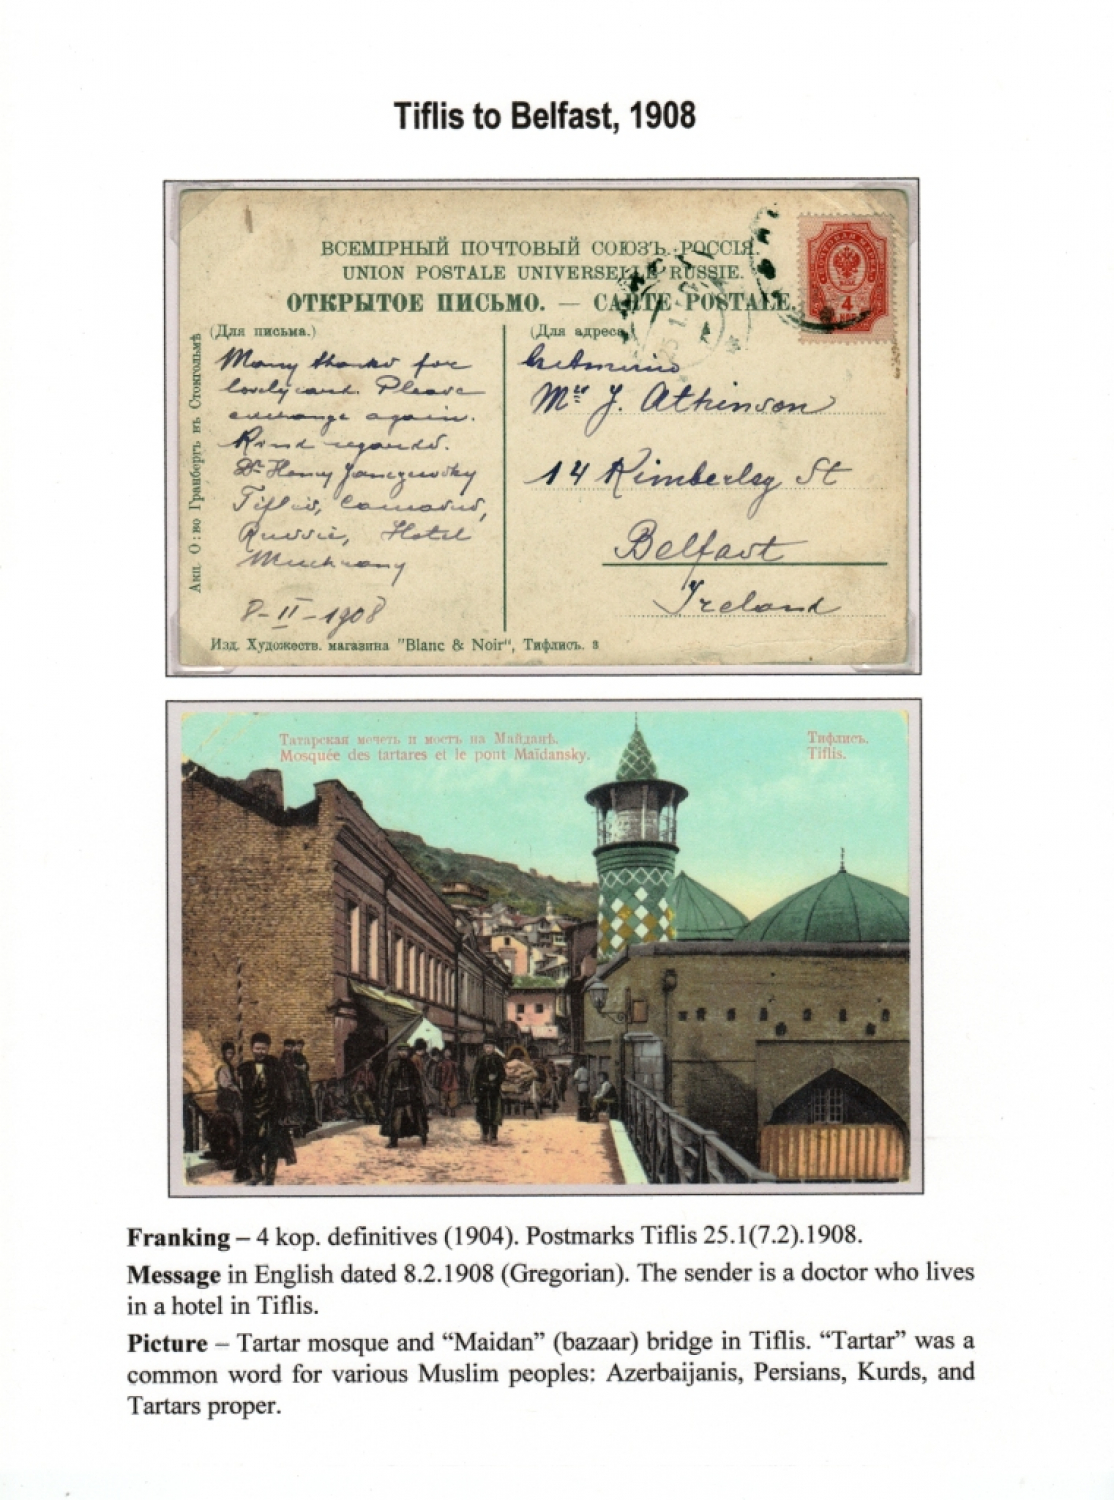 Tiflis to Belfast, 1908
ВСЕМІРНЫЙ ПОЧТОВЫЙ СОЮЗЪ. РОССІЯ.
UNION POSTALE UNIVERSELLE RUSSIE.
ОТКРЫТОЕ ПИСЬМО. — CARTE POSTALE.
4
(Для письма.)
Many thanks for
lovely card. Please
exchange again.
Kind regards.
Dr Henry Janczewsky
Tiflis, Caucasus,
Russie, Hotel
8-II-1908
(Для адреса.)
Mrs J. Atkinson
14 Kimberley St
Belfast
Ireland
Акц. О:во Гранбергъ въ Стокгольмѣ
Изд. Художеств. магазина "Blanc & Noir", Тифлисъ. 8
Татарская мечеть и мостъ на Майданѣ.
Mosquée des tartares et le pont Maïdansky.
Тифлисъ.
Tiflis.
Franking – 4 kop. definitives (1904). Postmarks Tiflis 25.1(7.2).1908.
Message in English dated 8.2.1908 (Gregorian). The sender is a doctor who lives
in a hotel in Tiflis.
Picture – Tartar mosque and “Maidan” (bazaar) bridge in Tiflis. “Tartar” was a
common word for various Muslim peoples: Azerbaijanis, Persians, Kurds, and
Tartars proper.